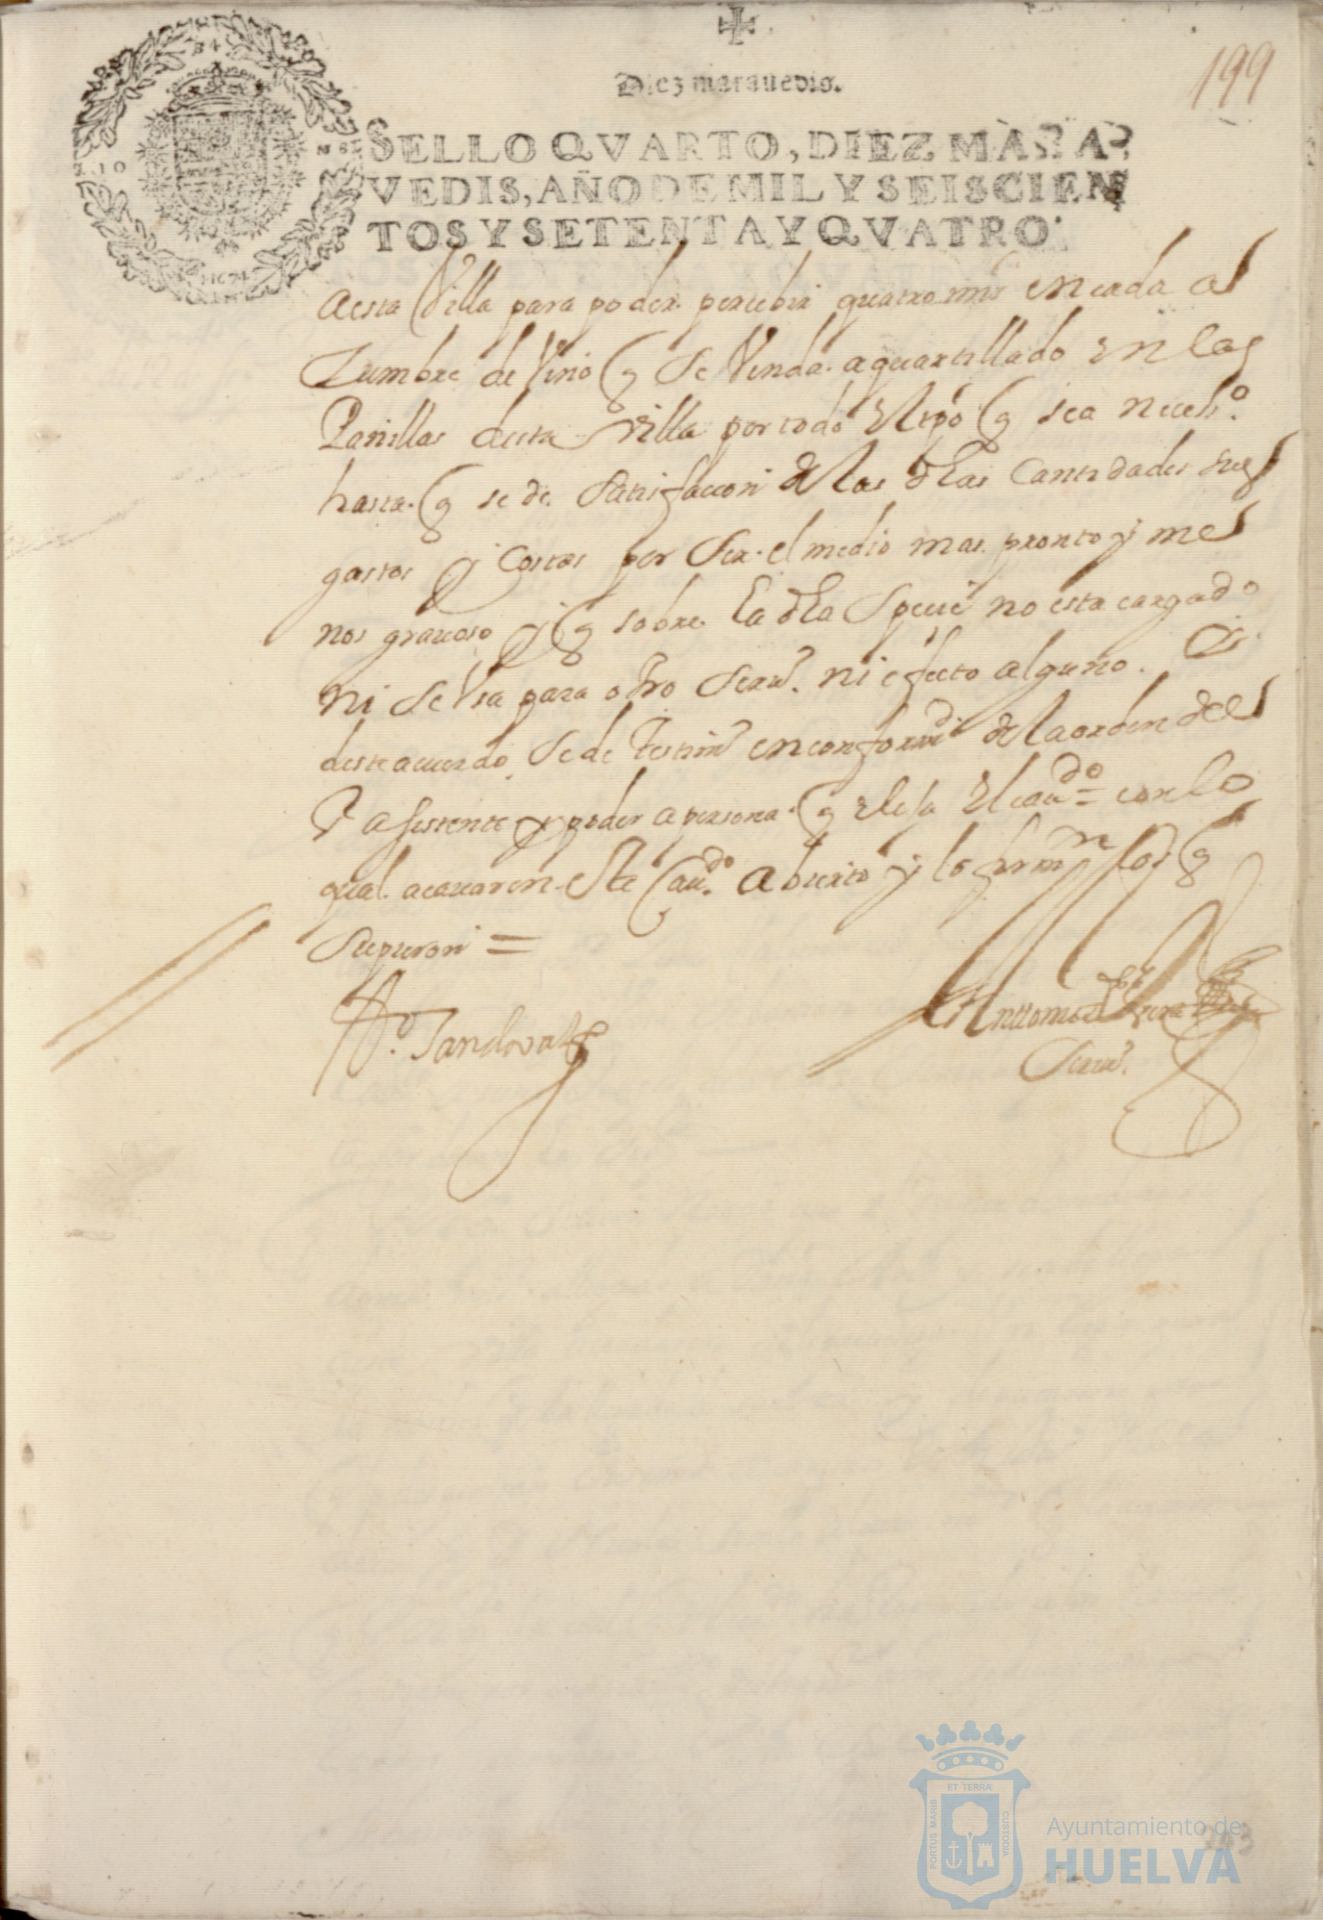 199
Diez maravedis.
SELLO QVARTO, DIEZ MARA
VEDIS, AÑO DE MIL Y SEISCIEN
TOS Y SETENTA Y QVATRO.
aesta Villa para poder percebir quatro mrs en cada a
Zumbre de Vino q se Venda aquartillado en las
desta Villa por todo el tpo q sea neceso
hasta q se de satisfaccion de las dhas Cantidades sus
gastos y Costas por ser el medio mas pronto y me
nos gravoso y q sobre la dha Specie no esta cargado
ni se Vsa para otro Serv. ni efecto alguno.
deste acuerdo se de Testimo en conformd de la orden del
asistente y poder a persona q elija el cavdo = con lo
qual acavaron este Cavdo abierto y lo firmn los q
supieron =
Sandoval
Anttonio
Scrivo.
ET TERRÆ
PORTUS MARIS
CUSTODIA
Ayuntamiento de
HUELVA